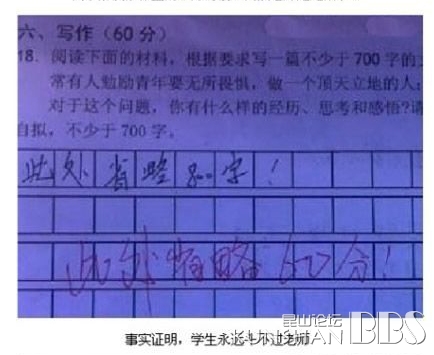 六、写作(60分)
18. 阅读下面的材料，根据要求写一篇不少于700字的
常有人勉励青年要无所畏惧，做一个顶天立地的人；
对于这个问题，你有什么样的经历、思考和感悟?请
自拟，不少于700字。
此处省略800字！
此处省略60分！
事实证明，学生永远斗不过老师
昆山论坛
KUNSHAN BBS